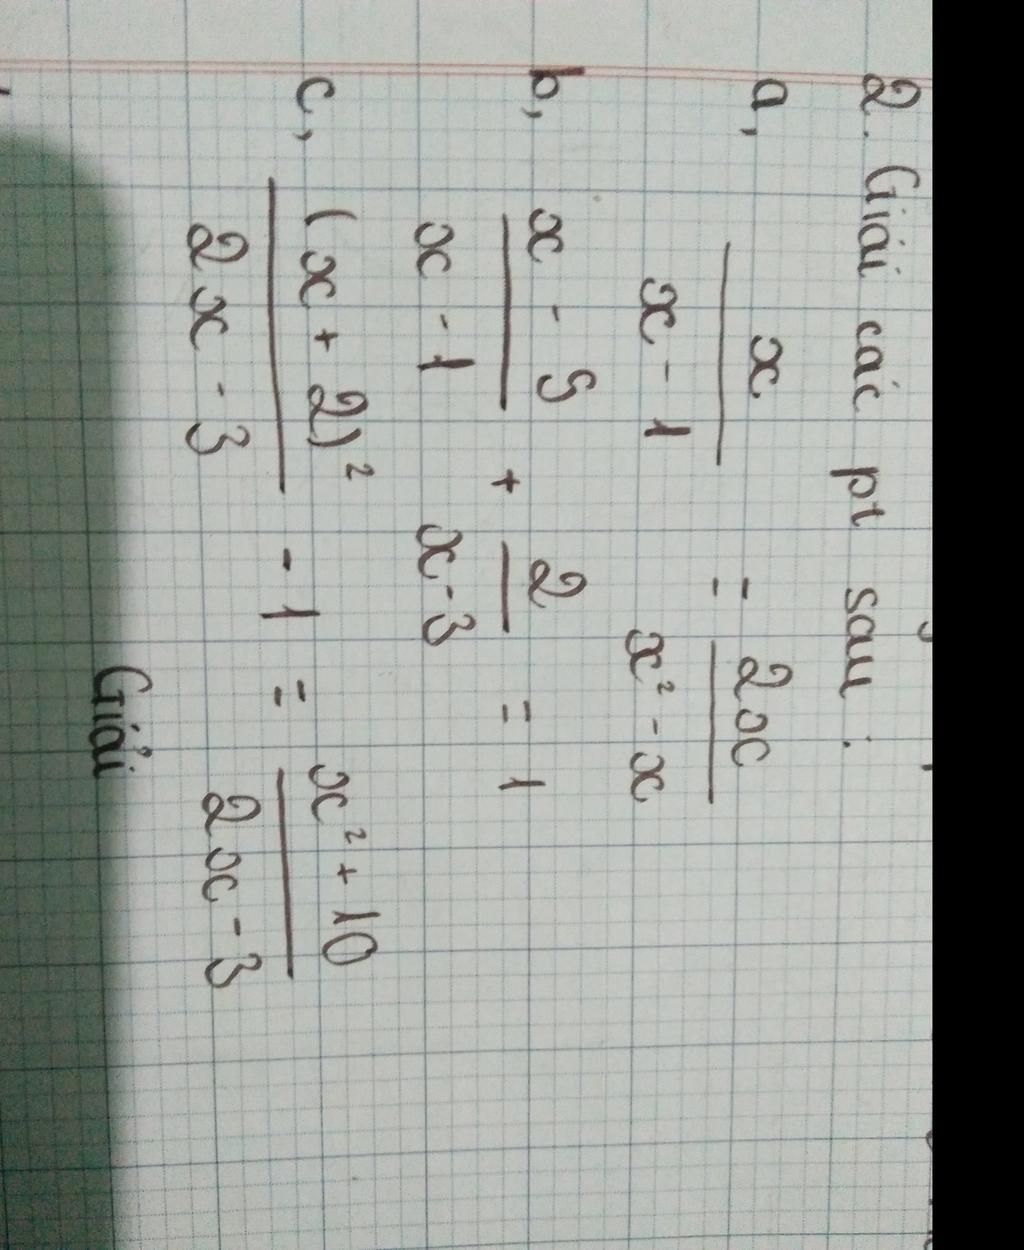 2. Giải các pt sau :
a, x/(x - 1) = 2x/(x² - x)
b, (x - 5)/(x - 1) + 2/(x - 3) = 1
c, (x + 2)²/(2x - 3) - 1 = (x² + 10)/(2x - 3)
Giải